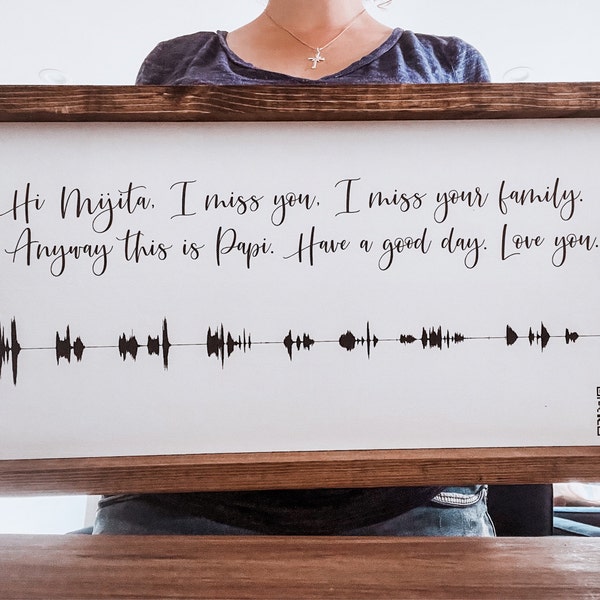 Hi Mijita, I miss you, I miss your family.
Anyway this is Papi. Have a good day. Love you.